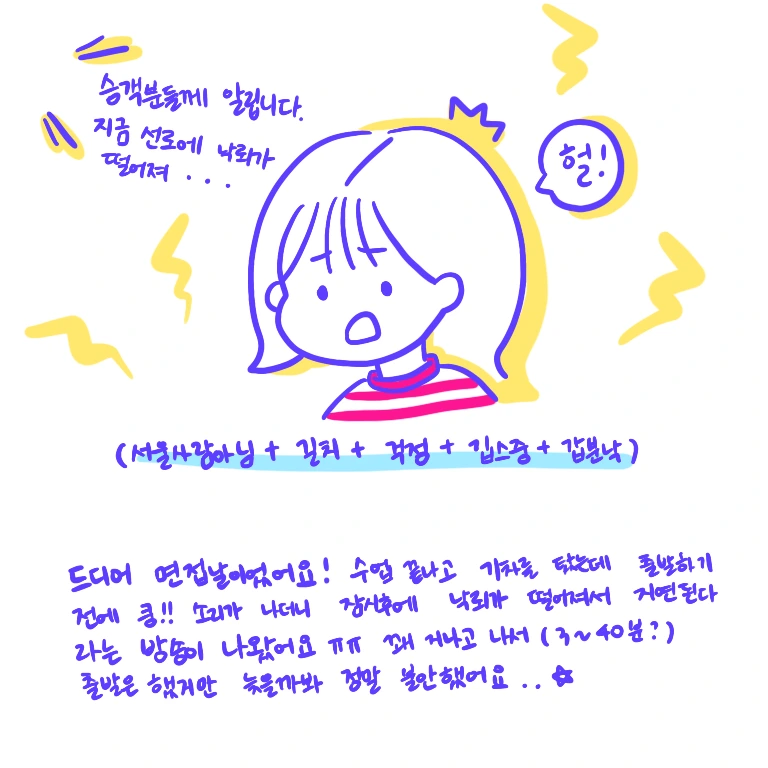 승객분들께 알립니다.
지금 선로에 낙뢰가
떨어져 ...
헐!
(서울사람아님 + 길치 + 걱정 + 깁스중 + 갑분낙)
드디어 면접날이었어요! 수업 끝나고 기차를 탔는데 출발하기
전에 쿵!! 소리가 나더니 잠시후에 낙뢰가 떨어져서 지연된다
라는 방송이 나왔어요 ㅠㅠ 꽤 지나고 나서 (3~40분?)
출발은 했지만 늦을까봐 정말 불안했어요 ..